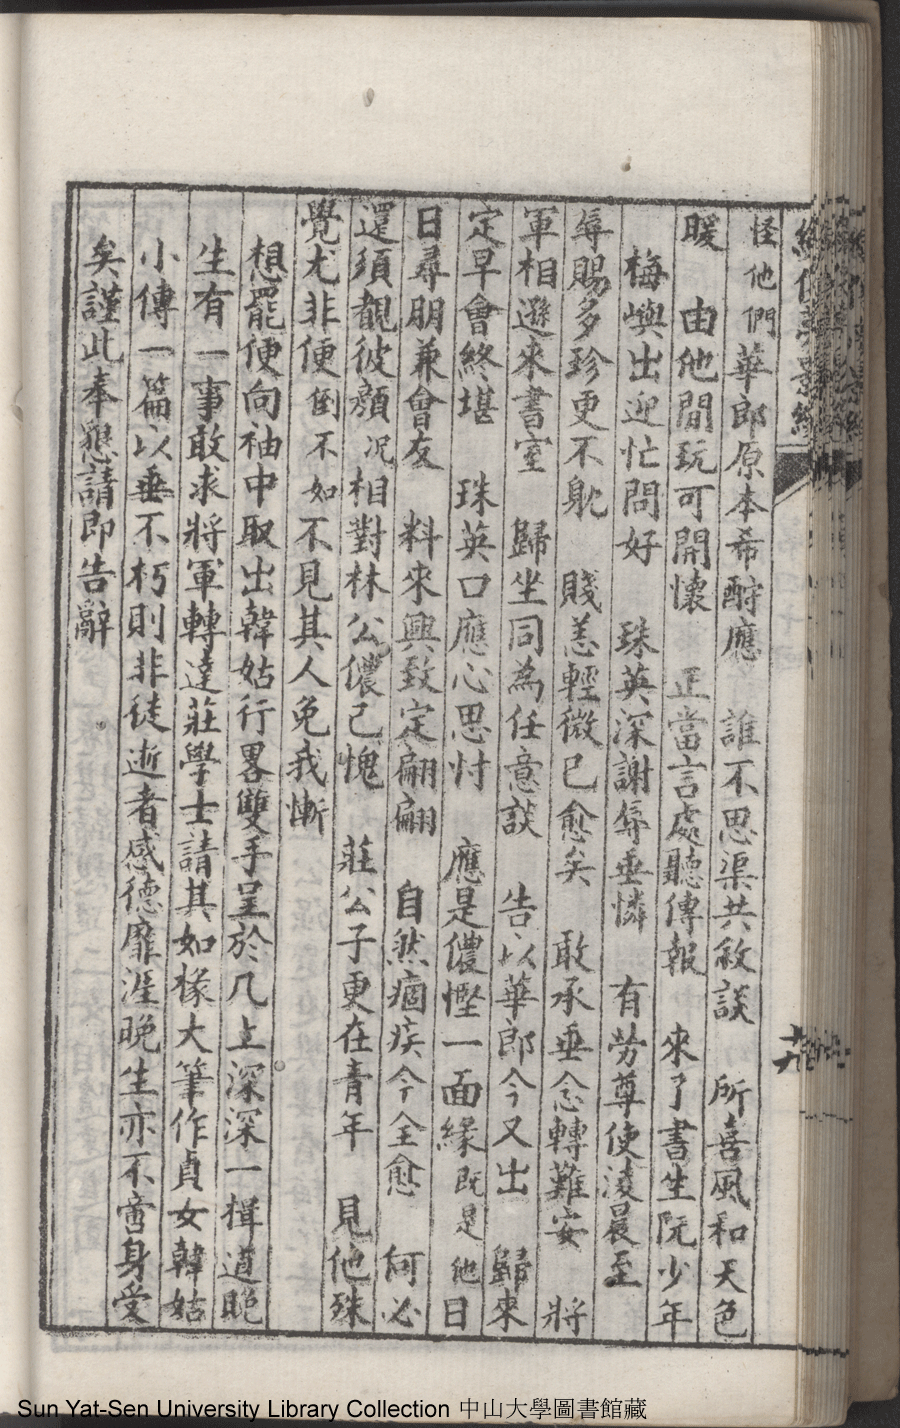 怪他們華郎原本希酧應　誰不思渠共敘談　所喜風和天色
暖　由他閒玩可開懷　正當言處聽傳報　來了書生阮少年
梅嶼出迎忙問好　珠英深謝辱垂憐　有勞尊使淩晨至
辱賜多珍更不躭　賤恙輕微已愈矣　敢承垂念轉難安　將
軍相遜來書室　歸坐同為任意談　告以華郎今又出　歸來
定早會終堪　珠英口應心思忖　應是儂慳一面緣既是他日
日尋朋兼會友　料來興致定翩翩　自然痼疾今全愈　何必
還須覩彼顏況相對林公儂己愧　莊公子更在青年　見他殊
覺尤非便倒不如不見其人免我慚
想罷便向袖中取出韓姑行畧雙手呈於几上深深一揖道晚
生有一事敢求將軍轉達莊學士請其如椽大筆作貞女韓姑
小傳一篇以垂不朽則非徒逝者感德靡涯晚生亦不啻身受
矣謹此奉懇請即告辭
Sun Yat-Sen University Library Collection 中山大學圖書館藏